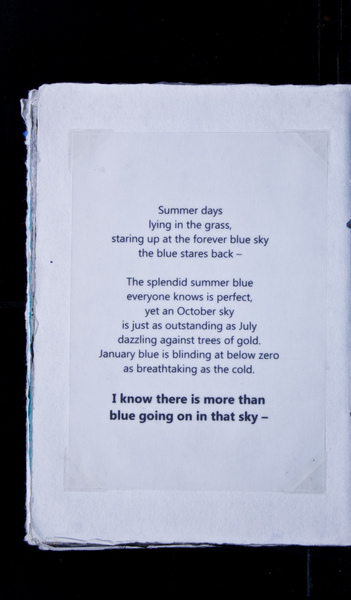 Summer days
lying in the grass,
staring up at the forever blue sky
the blue stares back –
The splendid summer blue
everyone knows is perfect,
yet an October sky
is just as outstanding as July
dazzling against trees of gold.
January blue is blinding at below zero
as breathtaking as the cold.
I know there is more than
blue going on in that sky –